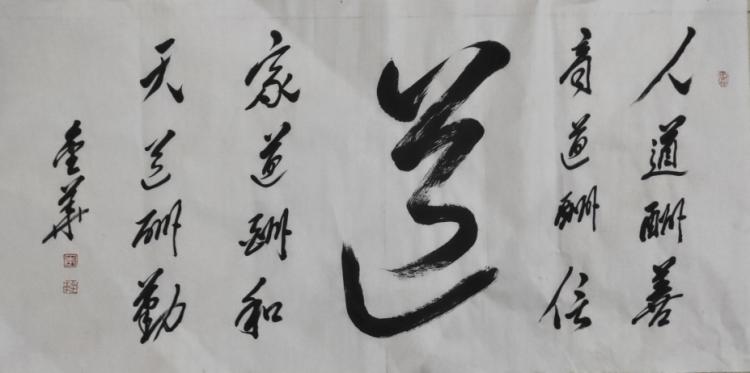 人道酬善
商道酬信
道
家道酬和
天道酬勤
華